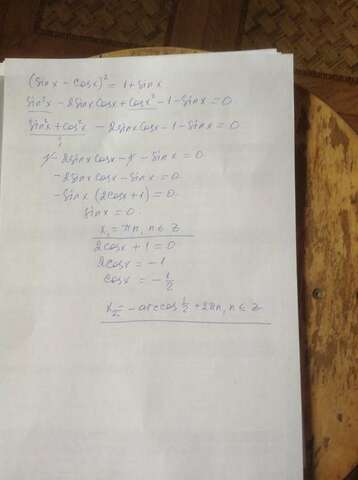 (sinx - cosx)² = 1 + sinx
sin²x - 2sinxcosx + cosx² - 1 - sinx = 0
sin²x + cos²x - 2sinxcosx - 1 - sinx = 0
1
1 - 2sinxcosx - 1 - sinx = 0
- 2sinxcosx - sinx = 0
- sinx (2cosx + 1) = 0
sinx = 0
x₁ = πn, n ∈ Z
2cosx + 1 = 0
2cosx = -1
cosx = - 1/2
x₂ = - arccos 1/2 + 2πn, n ∈ Z